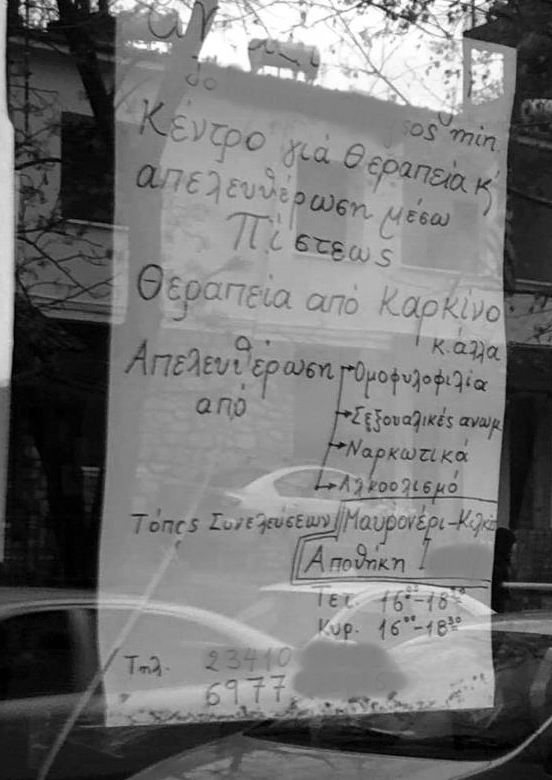 sos min
Κέντρο γιά Θεραπεία κ'
απελευθέρωση μέσω
Πίστεως
Θεραπεία από Καρκίνο
κ. άλλα
Απελευθέρωση → Ομοφυλοφιλία
από → Σεξουαλικές ανωμ
→ Ναρκωτικά
→ Αλκοολισμό
Τόπος Συνελεύσεων Μαυρονέρι-Κιλκί
Αποθήκη 1
Τετ. 16⁰⁰-18³⁰
Κυρ. 16⁰⁰-18³⁰
Τηλ. 23410
6977